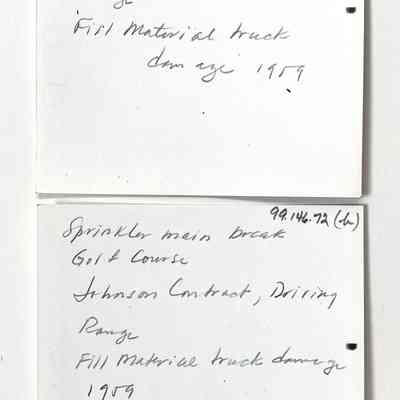 ge
Fill Material truck
damage 1959
99.146.72 (b)
Sprinkler main break
Golf Course
Johnson Contract, Driving
Range
Fill Material truck damage
1959